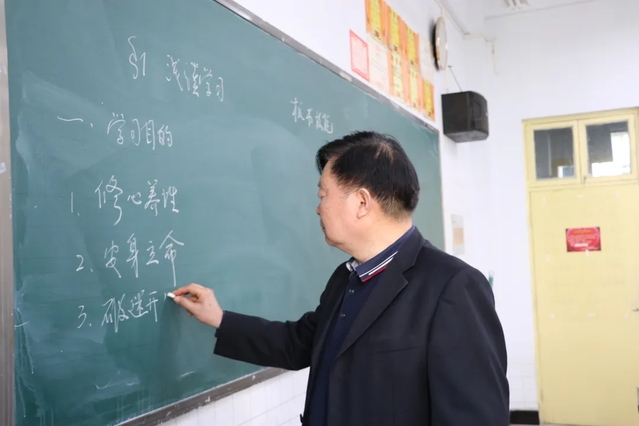 §1 浅谈学习
板书技能
一、学习目的
1. 修心养性
2. 安身立命
3. 破迷开